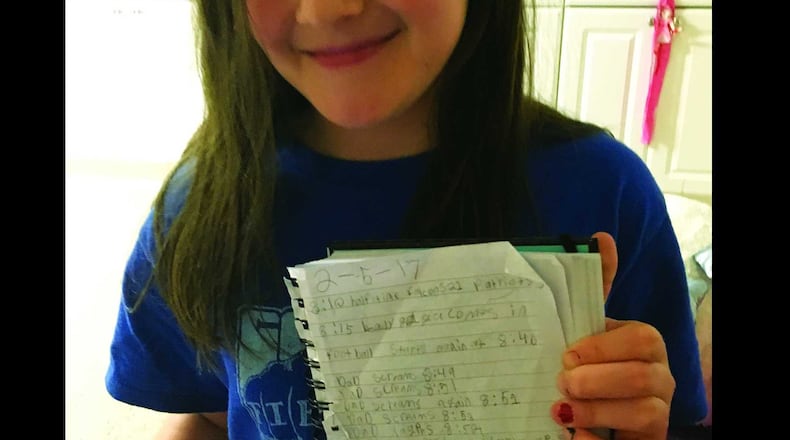 2-5-17
8:10 half time falcons 21 Patriots
8:15 lady gaga comes in
football starts again at 8:40
DaD screams 8:49
DaD screams 8:51
DaD screams again 8:52
DaD screams 8:53
DaD 8:54